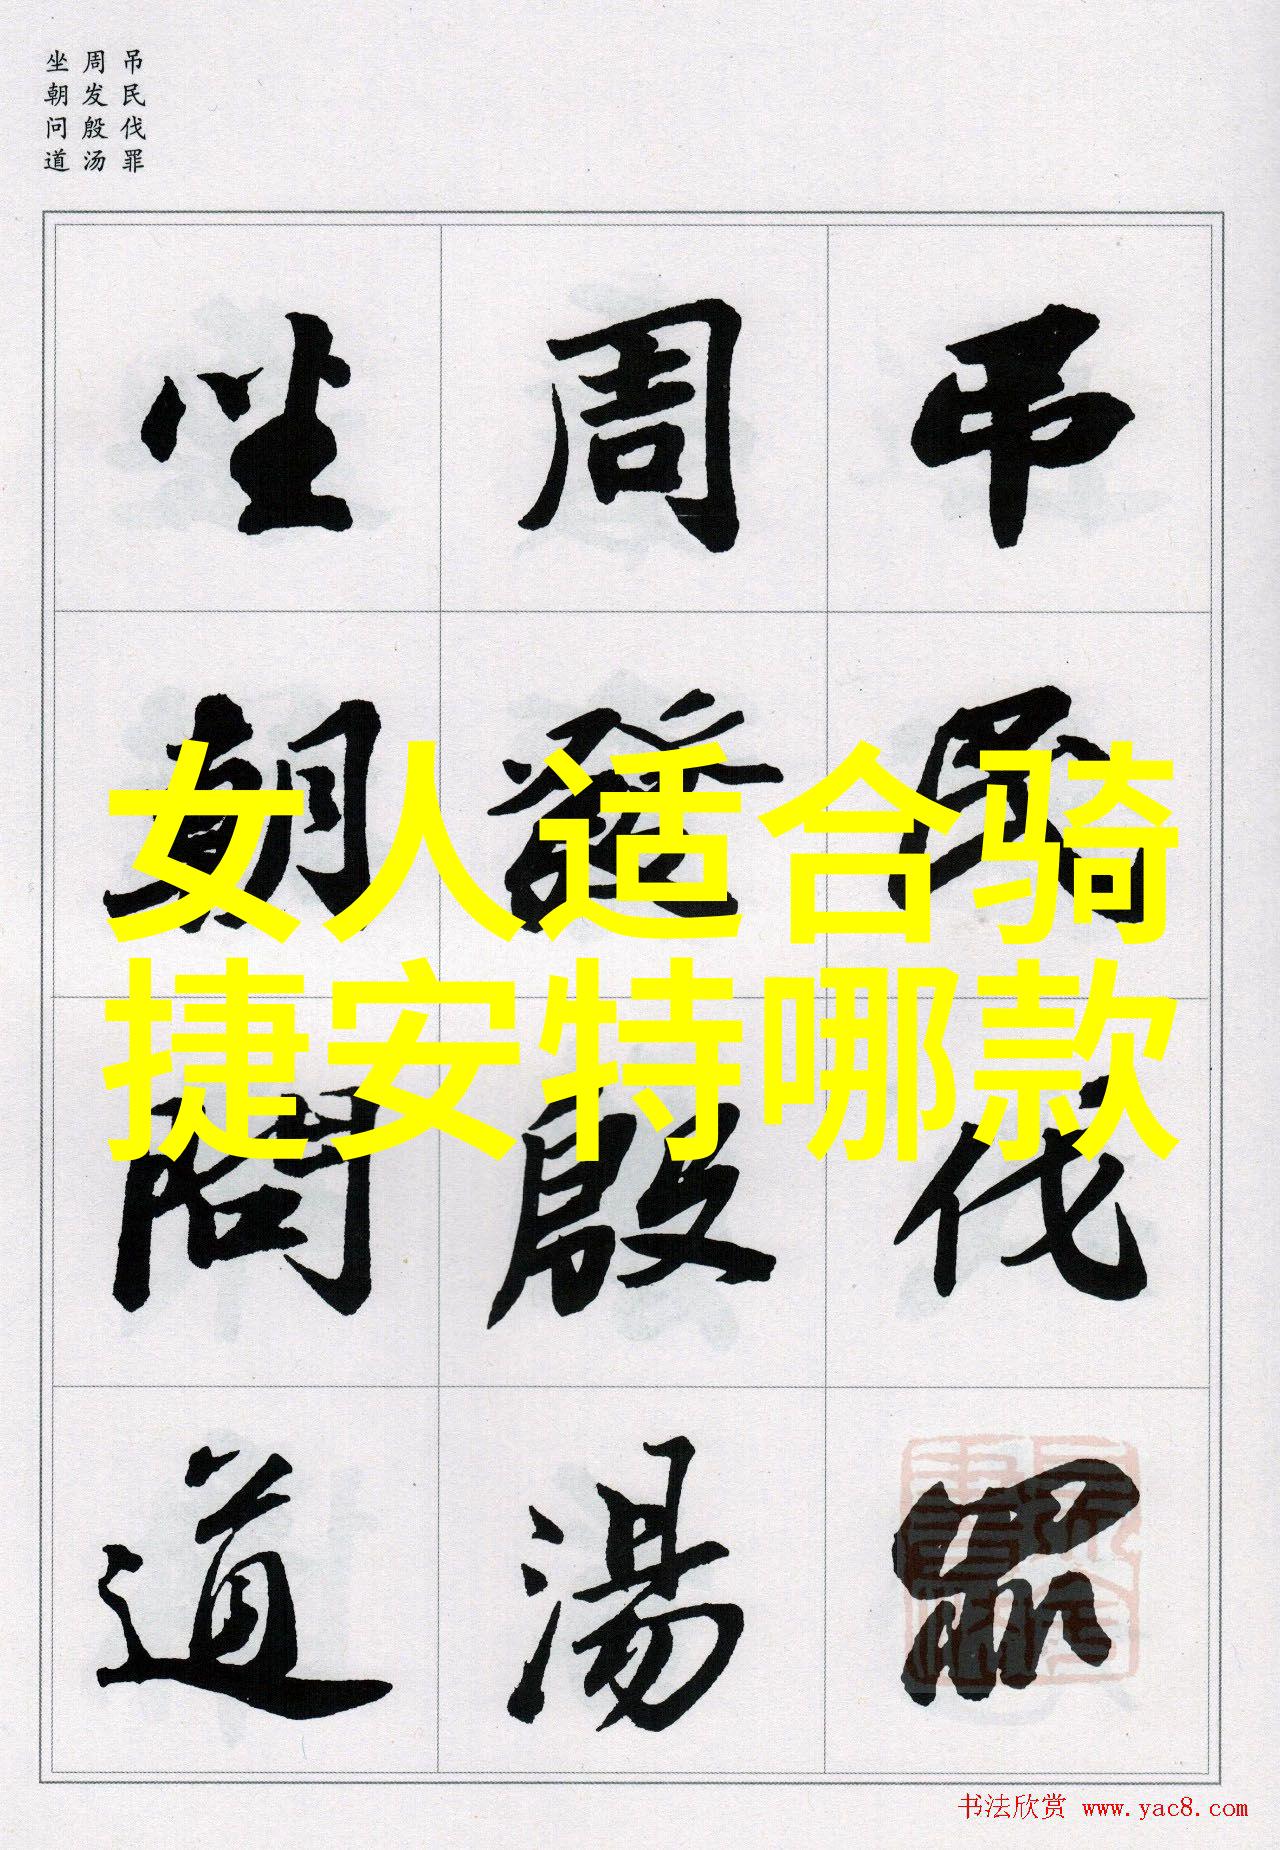 吊民伐罪
周发殷汤
坐朝问道
吊民伐罪
周發殷湯
坐朝問道
女人适合骑
捷安特哪款
书法欣赏 www.yac8.com